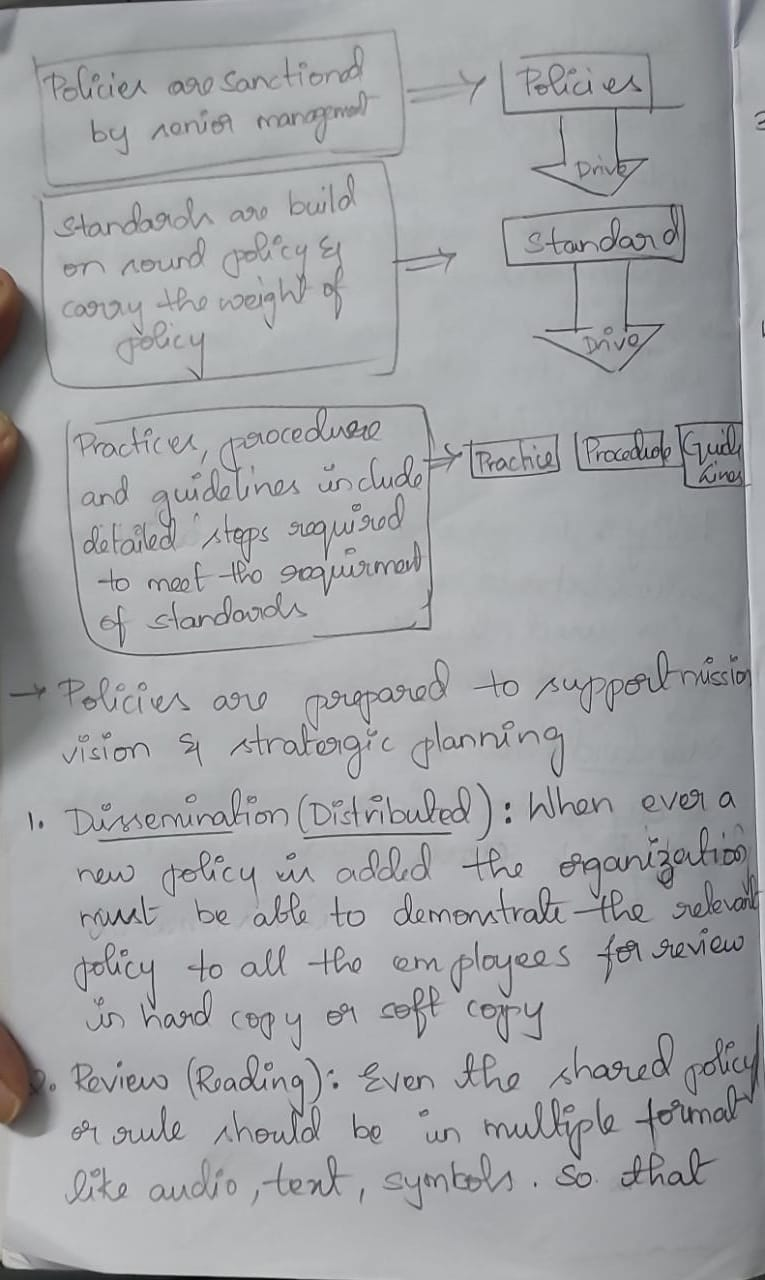 Policies are sanctioned
by senior management
Policies
Drive
Standards are build
on sound policy &
carry the weight of
policy
Standard
Drive
Practices, procedure
and guidelines include
detailed steps required
to meet the requirment
of standards
Practice
Procedure
Guide
lines
→ Policies are prepared to support mission
vision & stratergic planning
1. Dissemination (Distributed): When ever a
new policy is added the organization
must be able to demonstrate the relevant
policy to all the employees for review
in hard copy or soft copy
2. Review (Reading): Even the shared policy
or rule should be in multiple format
like audio, text, symbols. So that